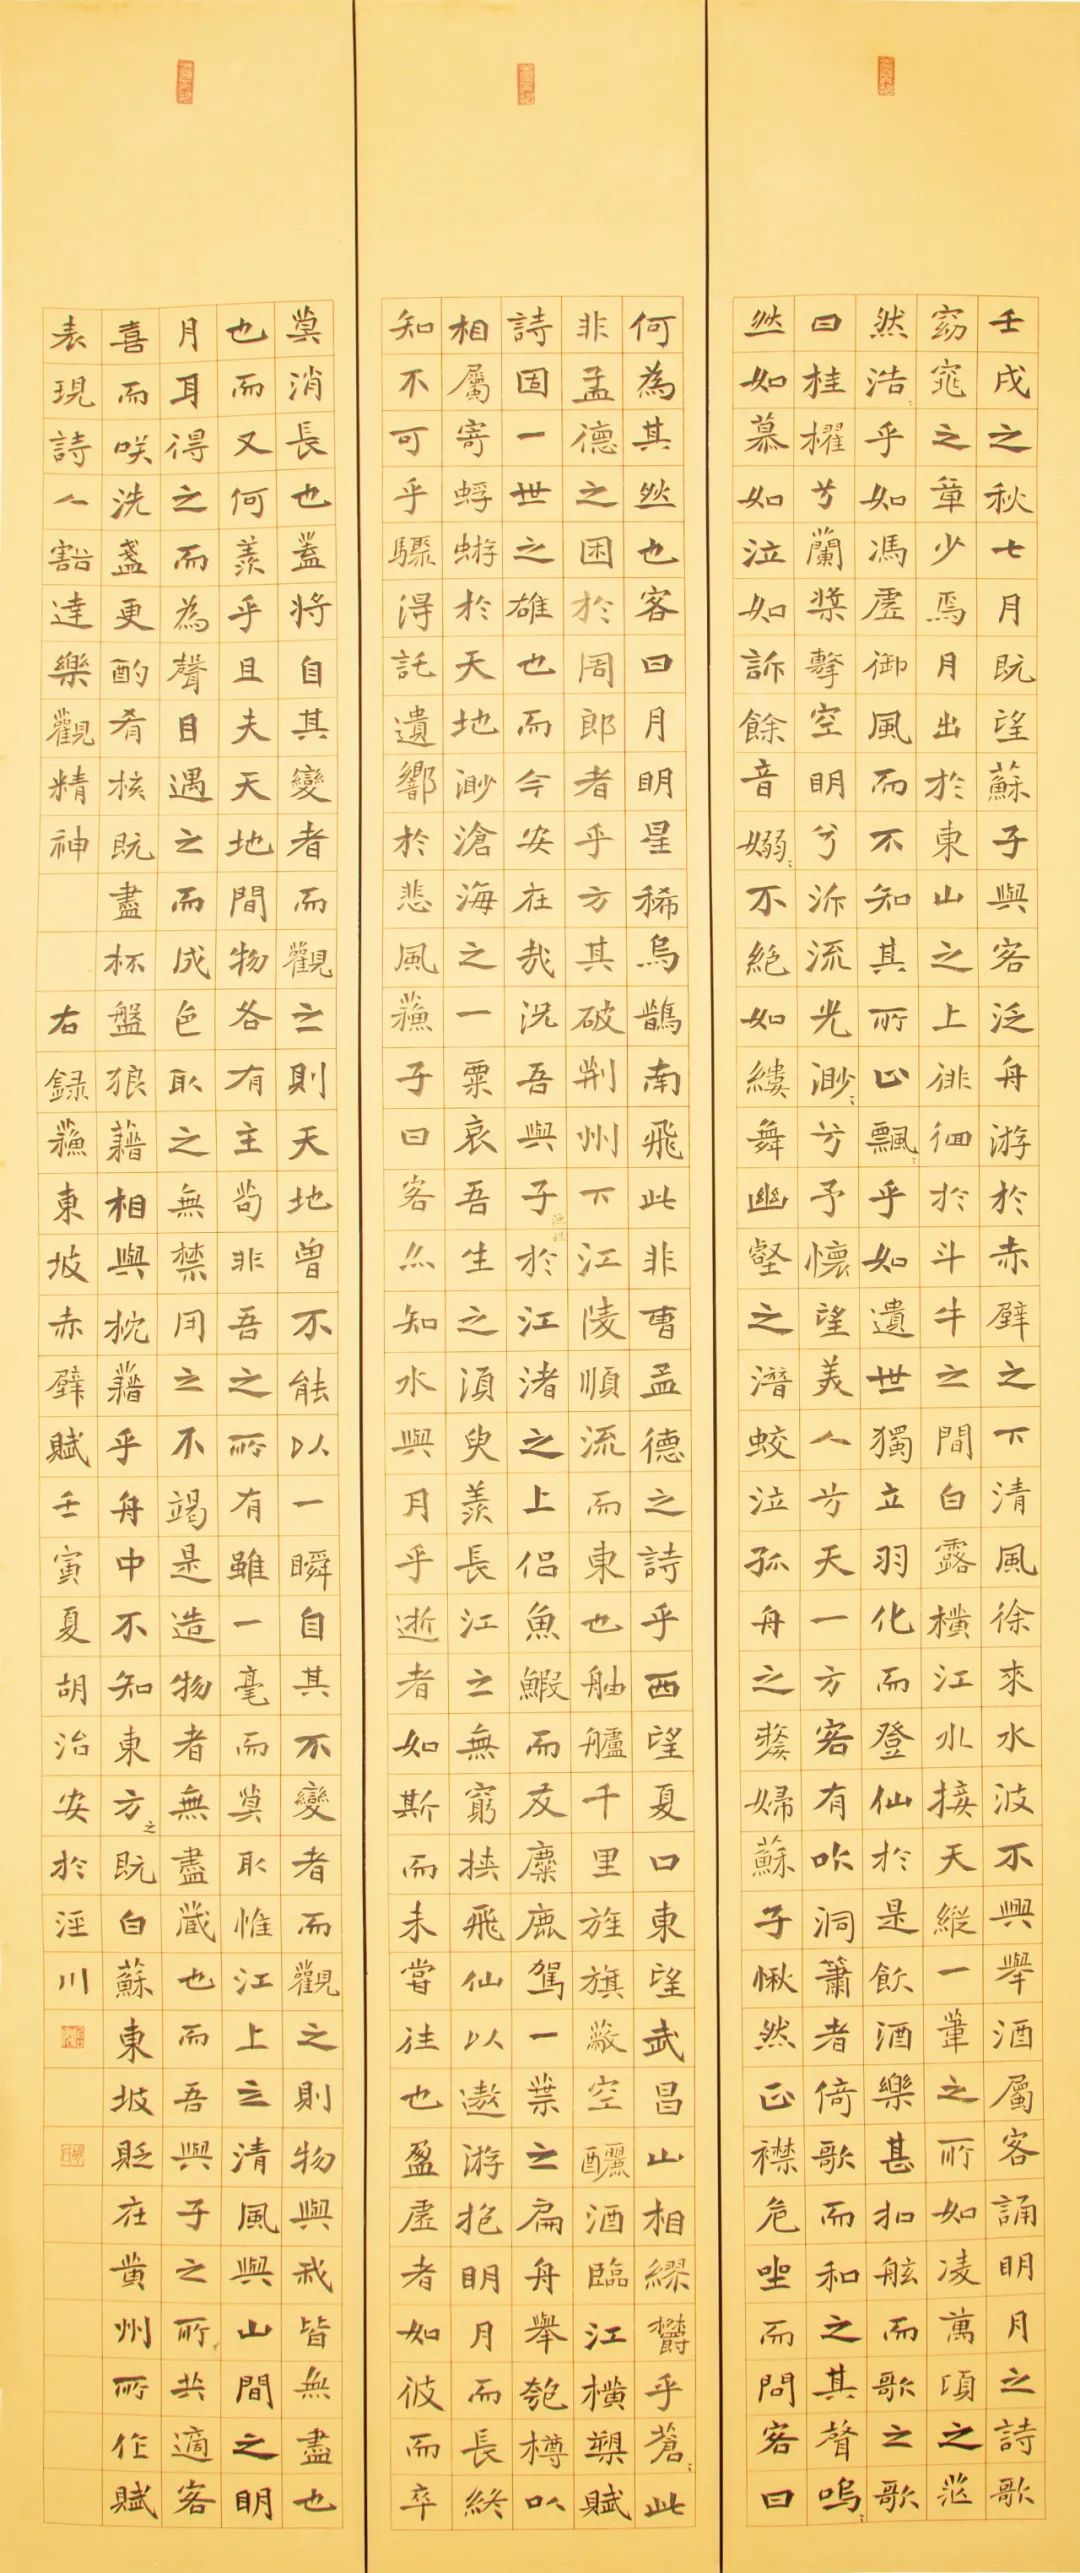 壬戌之秋七月既望蘇子與客泛舟游於赤壁之下清風徐來水波不興舉酒屬客誦明月之詩歌
窈窕之章少焉月出於東山之上徘徊於斗牛之間白露橫江水接天縱一葦之所如凌萬頃之茫
然浩〻乎如馮虛御風而不知其所止飄〻乎如遺世獨立羽化而登仙於是飲酒樂甚扣舷而歌之歌
曰桂櫂兮蘭槳擊空明兮泝流光渺〻兮予懷望美人兮天一方客有吹洞簫者倚歌而和之其聲嗚〻
然如慕如泣如訴餘音嫋〻不絕如縷舞幽壑之潛蛟泣孤舟之嫠婦蘇子愀然正襟危坐而問客曰
何為其然也客曰月明星稀烏鵲南飛此非曹孟德之詩乎西望夏口東望武昌山相繆鬱乎蒼〻此
非孟德之困於周郎者乎方其破荊州下江陵順流而東也舳艫千里旌旗蔽空釃酒臨江橫槊賦
詩固一世之雄也而今安在哉況吾與子漁樵於江渚之上侶魚鰕而友麋鹿駕一葉之扁舟舉匏樽以
相屬寄蜉蝣於天地渺滄海之一粟哀吾生之須臾羨長江之無窮挾飛仙以遨游抱明月而長終
知不可乎驟得託遺響於悲風蘇子曰客亦知水與月乎逝者如斯而未嘗往也盈虛者如彼而卒
莫消長也蓋將自其變者而觀之則天地曾不能以一瞬自其不變者而觀之則物與我皆無盡也
也而又何羨乎且夫天地間物各有主苟非吾之所有雖一毫而莫取惟江上之清風與山間之明
月耳得之而為聲目遇之而成色取之無禁用之不竭是造物者無盡藏也而吾與子之所共適客
喜而咲洗盞更酌肴核既盡杯盤狼藉相與枕藉乎舟中不知東方之既白蘇東坡貶在黄州所作賦
表現詩人豁達樂觀精神 右錄蘇東坡赤壁賦壬寅夏胡治安於涇川